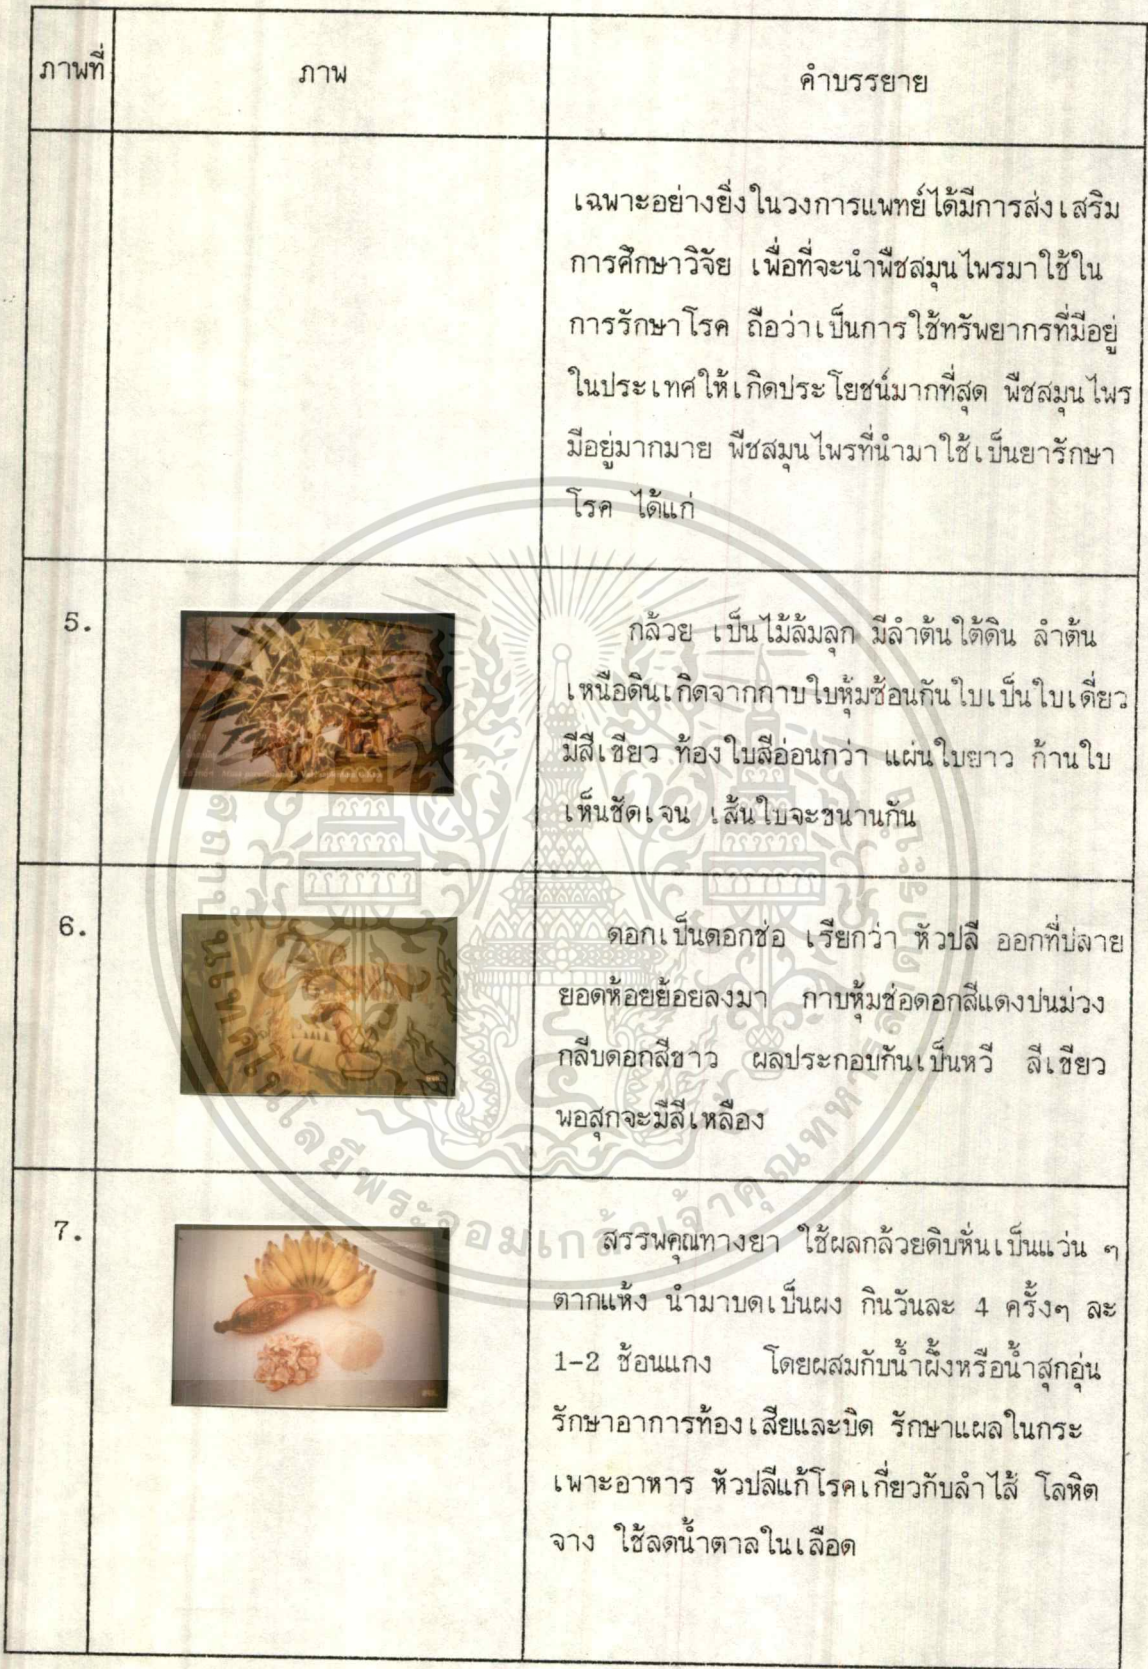 ภาพที่ ภาพ คำบรรยาย
เฉพาะอย่างยิ่งในวงการแพทย์ได้มีการส่งเสริม
การศึกษาวิจัย เพื่อที่จะนำพืชสมุนไพรมาใช้ใน
การรักษาโรค ถือว่าเป็นการใช้ทรัพยากรที่มีอยู่
ในประเทศให้เกิดประโยชน์มากที่สุด พืชสมุนไพร
มีอยู่มากมาย พืชสมุนไพรที่นำมาใช้เป็นยารักษา
โรค ได้แก่
5. กล้วย เป็นไม้ล้มลุก มีลำต้นใต้ดิน ลำต้น
เหนือดินเกิดจากกาบใบหุ้มซ้อนกันใบเป็นใบเดี่ยว
มีสีเขียว ท้องใบสีอ่อนกว่า แผ่นใบยาว ก้านใบ
เห็นชัดเจน เส้นใบจะขนานกัน
6. ดอกเป็นดอกช่อ เรียกว่า หัวปลี ออกที่ปลาย
ยอดห้อยย้อยลงมา กาบหุ้มช่อดอกสีแดงปนม่วง
กลีบดอกสีขาว ผลประกอบกันเป็นหวี สีเขียว
พอสุกจะมีสีเหลือง
7. สรรพคุณทางยา ใช้ผลกล้วยดิบหั่นเป็นแว่น ๆ
ตากแห้ง นำมาบดเป็นผง กินวันละ 4 ครั้งๆ ละ
1-2 ช้อนแกง โดยผสมกับน้ำผึ้งหรือน้ำสุกอุ่น
รักษาอาการท้องเสียและบิด รักษาแผลในกระ
เพาะอาหาร หัวปลีแก้โรคเกี่ยวกับลำไส้ โลหิต
จาง ใช้ลดน้ำตาลในเลือด
สถาบันเทคโนโลยีพระจอมเกล้าเจ้าคุณทหารลาดกระบัง